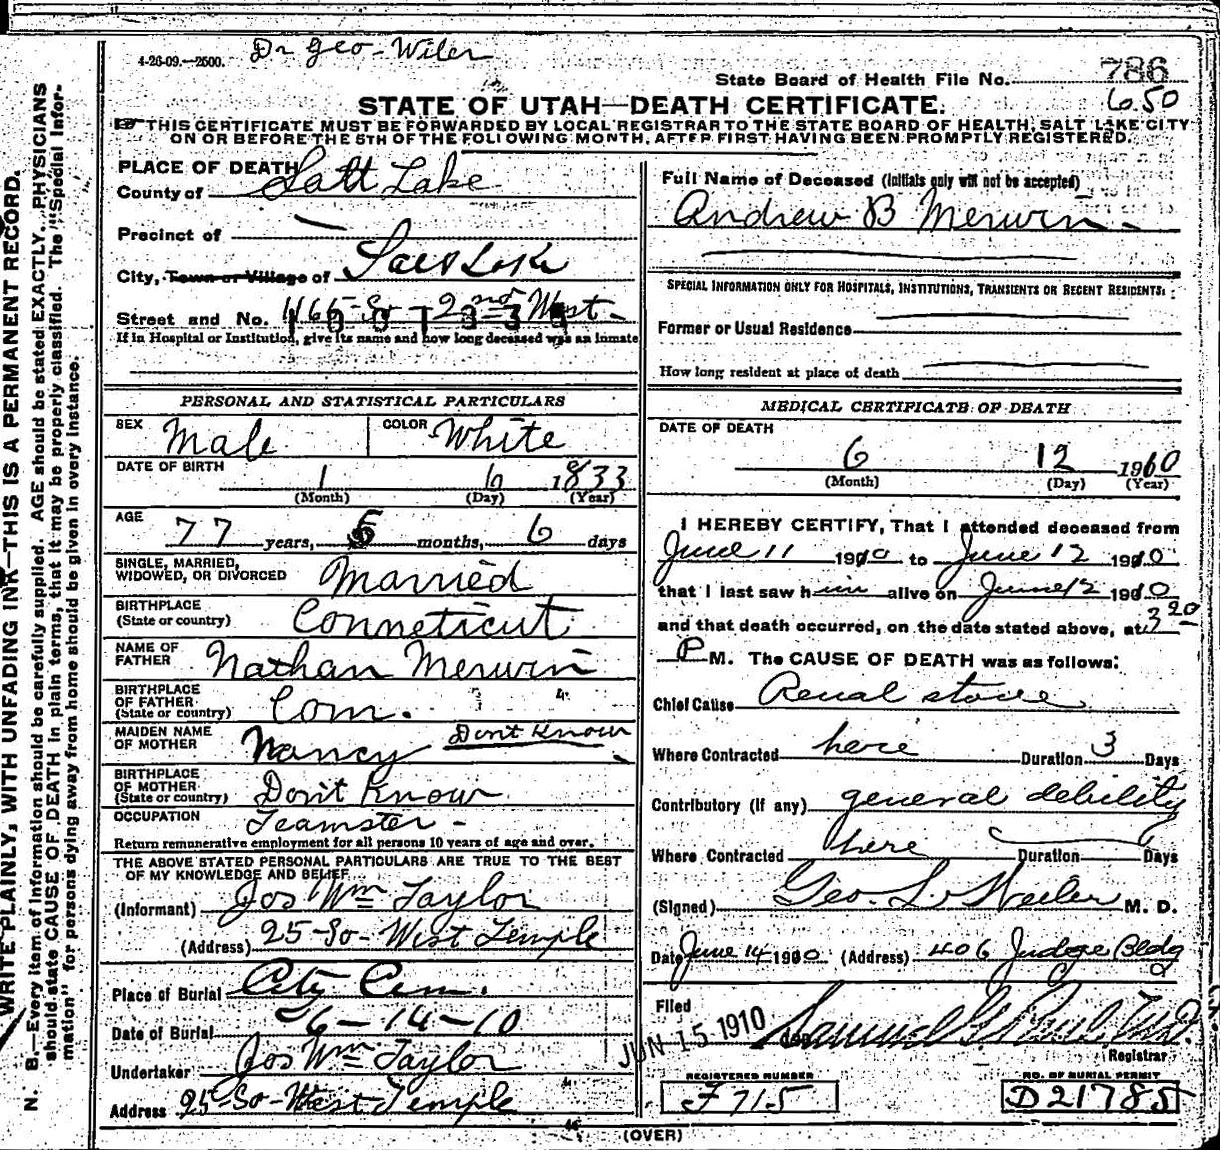 4-26-09.—2500.
Dr Geo - Wiler
State Board of Health File No. 786
650
STATE OF UTAH—DEATH CERTIFICATE.
THIS CERTIFICATE MUST BE FORWARDED BY LOCAL REGISTRAR TO THE STATE BOARD OF HEALTH, SALT LAKE CITY
ON OR BEFORE THE 5TH OF THE FOLLOWING MONTH, AFTER FIRST HAVING BEEN PROMPTLY REGISTERED.
WRITE PLAINLY, WITH UNFADING INK—THIS IS A PERMANENT RECORD.
N. B.—Every item of information should be carefully supplied. AGE should be stated EXACTLY. PHYSICIANS
should state CAUSE OF DEATH in plain terms, that it may be properly classified. The "Special Infor-
mation" for persons dying away from home should be given in every instance.
PLACE OF DEATH
County of Salt Lake
Precinct of
City, Town or Village of Salt Lake
Street and No. 466 So - 2nd West -
If in Hospital or Institution, give its name and how long deceased was an inmate
PERSONAL AND STATISTICAL PARTICULARS
SEX Male COLOR White
DATE OF BIRTH 1 6 1833
(Month) (Day) (Year)
AGE 77 years, 5 months, 6 days
SINGLE, MARRIED,
WIDOWED, OR DIVORCED Married
BIRTHPLACE
(State or country) Conneticut
NAME OF
FATHER Nathan Merwin
BIRTHPLACE
OF FATHER
(State or country) Conn.
MAIDEN NAME
OF MOTHER Nancy Don't Know
BIRTHPLACE
OF MOTHER
(State or country) Don't Know
OCCUPATION Teamster -
Return remunerative employment for all persons 10 years of age and over.
THE ABOVE STATED PERSONAL PARTICULARS ARE TRUE TO THE BEST
OF MY KNOWLEDGE AND BELIEF
(Informant) Jos Wm Taylor
(Address) 25 - So - West Temple
Place of Burial City Cem.
Date of Burial 6-14-10
Undertaker Jos Wm Taylor
Address 25 So-West Temple
Full Name of Deceased (Initials only will not be accepted)
Andrew B Merwin -
SPECIAL INFORMATION ONLY FOR HOSPITALS, INSTITUTIONS, TRANSIENTS OR RECENT RESIDENTS:
Former or Usual Residence
How long resident at place of death
MEDICAL CERTIFICATE OF DEATH
DATE OF DEATH
6 12 1910
(Month) (Day) (Year)
I HEREBY CERTIFY, That I attended deceased from
June 11 1910 to June 12 1910
that I last saw him alive on June 12 1910
and that death occurred, on the date stated above, at 3 20
P M. The CAUSE OF DEATH was as follows:
Chief Cause Renal stone
Where Contracted here Duration 3 Days
Contributory (If any) general debility
Where Contracted here Duration Days
(Signed) Geo. L. Weiler M. D.
Date June 14 1910 (Address) 406 Judge Bldg
Filed
JUN 15 1910 Samuel G Paul, M.D.
Registrar
REGISTERED NUMBER NO. OF BURIAL PERMIT
F 715 D 21785
(OVER)